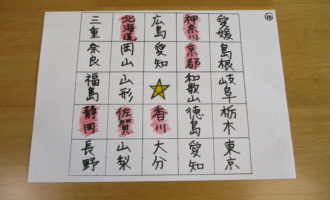 三重 北海道 広島 神奈川 愛媛
奈良 岡山 愛知 京都 島根
福島 山形 和歌山 岐阜
静岡 佐賀 香川 徳島 栃木
長野 山梨 大分 愛知 東京